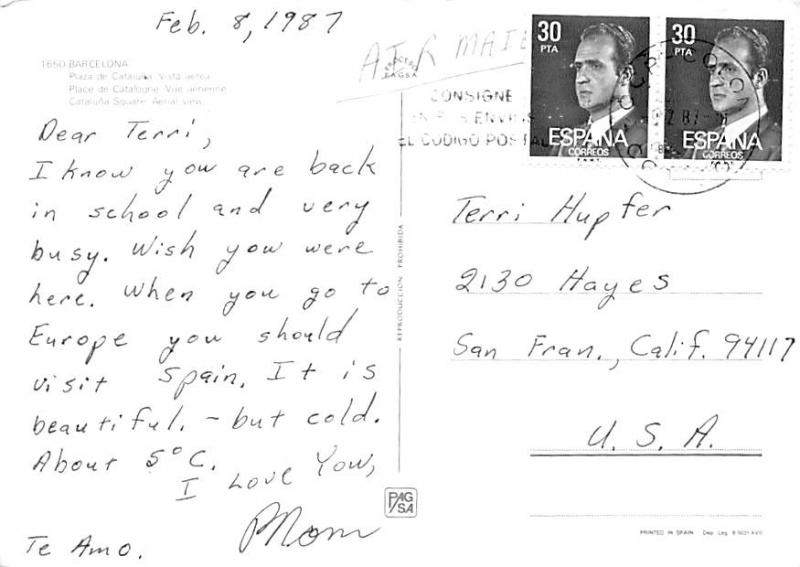 Feb. 8, 1987
AIR MAIL
1650-BARCELONA
Plaza de Cataluña. Vista aerea
Place de Catalogne. Vue aérienne
Cataluña Square. Aerial view
Dear Terri,
I know you are back
in school and very
busy. Wish you were
here. When you go to
Europe you should
visit Spain. It is
beautiful. - but cold.
About 5°C.
I Love You,
Mom
Te Amo.
PROCESO
PAGSA
REPRODUCCION PROHIBIDA
PAG
SA
30
PTA
ESPAÑA
CORREOS
30
PTA
ESPAÑA
CORREOS
CONSIGNE
EN SUS ENVIOS
EL CODIGO POSTAL
Terri Hupfer
2130 Hayes
San Fran., Calif. 94117
U. S. A.
PRINTED IN SPAIN Dep. Leg. B